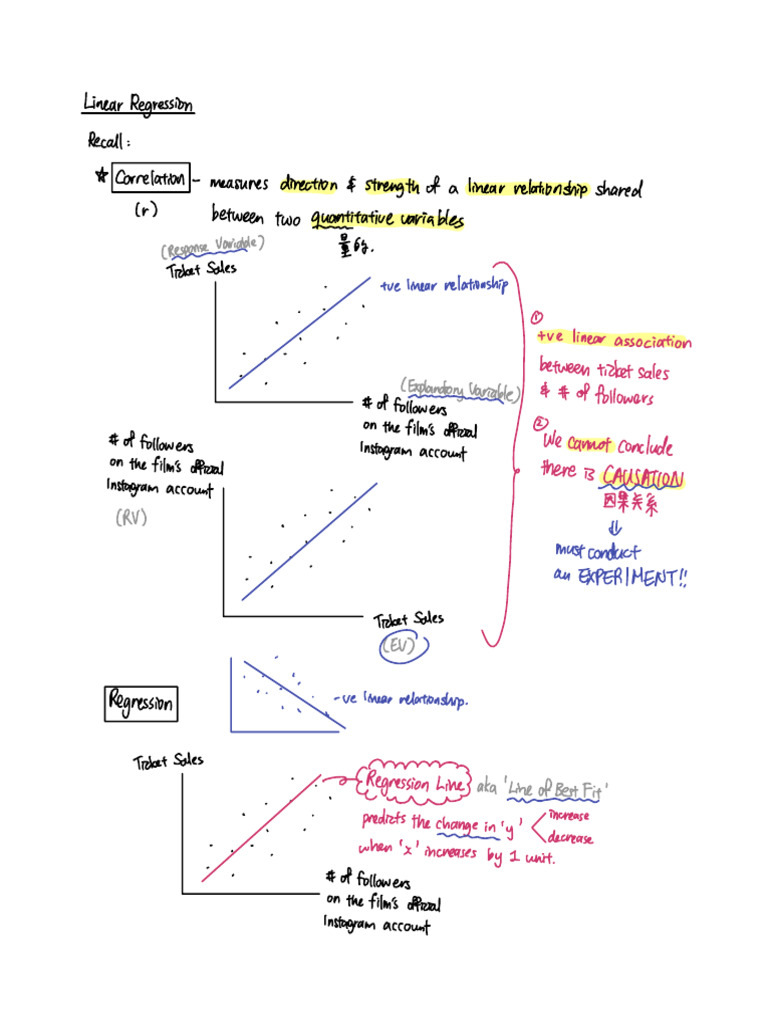 Linear Regression
Recall:
☆ Correlation - measures direction & strength of a linear relationship shared
(r) between two quantitative variables
量的.
(Response Variable)
Ticket Sales
+ve linear relationship
(Explanatory Variable)
# of followers
on the film's official
Instagram account
①
+ve linear association
between ticket sales
& # of followers
②
We cannot conclude
there is CAUSATION
因果关系
⇓
must conduct
an EXPERIMENT!!
# of followers
on the film's official
Instagram account
(RV)
Ticket Sales
(EV)
Regression
-ve linear relationship.
Ticket Sales
Regression Line aka 'Line of Best Fit'
predicts the change in 'y' < increase
decrease
when 'x' increases by 1 unit.
# of followers
on the film's official
Instagram account